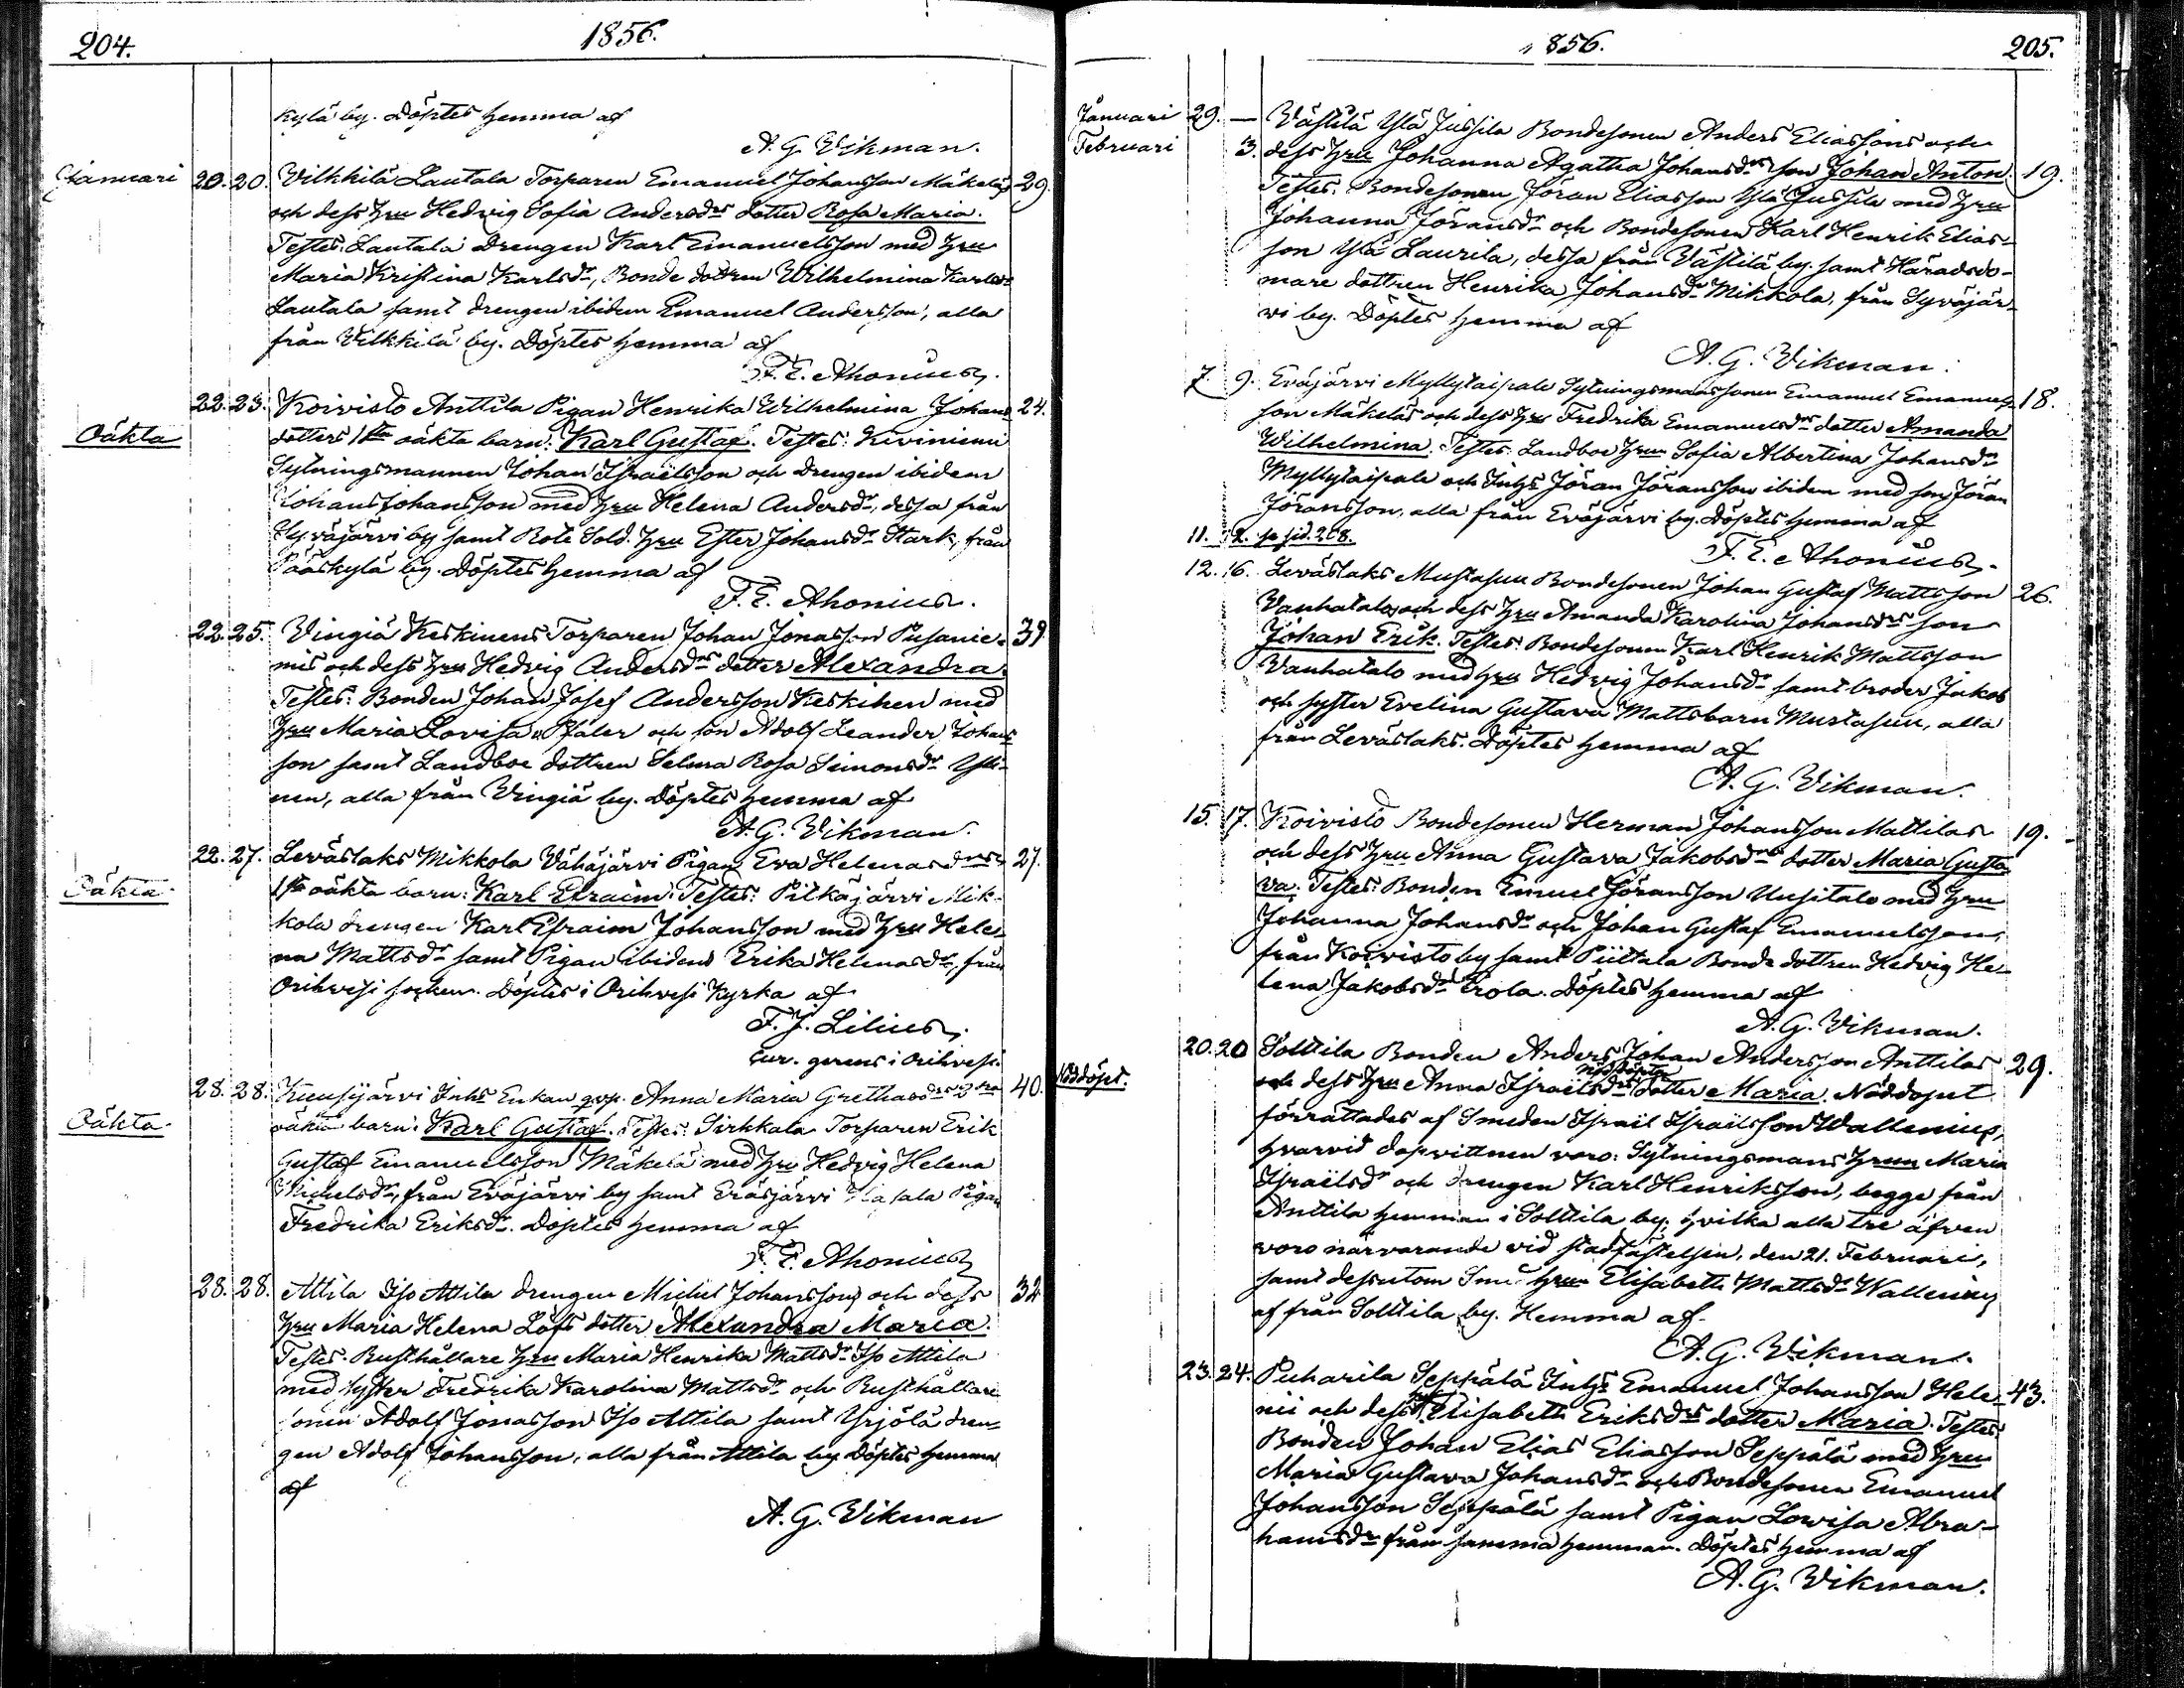 204.
1856.
kylä by. Döptes hemma af
A. G. Vikman.
Januari 20. 20. Vilkkilä Lautala Torparen Emanuel Johansson Mäkeläs 29.
och dess hru Hedvig Sofia Andersdrs dotter Rosa Maria.
Testes: Lautala drengen Karl Emanuelsson med hru
Maria Kristina Karlsdr, Bonde dottren Wilhelmina Karlsdr
Lautala samt drengen ibidem Emanuel Andersson, alla
från Vilkkilä by. Döptes hemma af
F. E. Ahonius.
22. 23. Koivisto Anttila Pigan Henrika Wilhelmina Johans 24.
Oäkta dotters 1sta oäkta barn: Karl Gustaf. Testes: Kiviniemi
Sytningsmannen Johan Israelsson och drengen ibidem
Johan Johansson med hru Helena Andersdr, dessa från
Syväjärvi by samt Rote Sold. hru Ester Johansdr Stark, från
Pääskylä by. Döptes hemma af
F. E. Ahonius.
22. 25. Vingiä Keskinens Torparen Johan Jonasson Pusanie- 39
mis och dess hru Hedvig Andersdrs dotter Alexandra.
Testes: Bonden Johan Josef Andersson Keskinen med
hru Maria Lovisa Pfaler och son Adolf Leander Johans
son samt Landboe dottren Selma Rosa Simonsdr Yli-
nen, alla från Vingiä by. Döptes hemma af
A. G. Vikman.
22. 27. Leväslaks Mikkola Vähäjärvi Pigan Eva Helenasdrs 27.
Oäkta 1sta oäkta barn: Karl Efraim. Testes: Pitkäjärvi Mik-
kola drengen Karl Efraim Johansson med hru Hele-
na Mattsdr samt Pigan ibidem Erika Helenasdr, från
Orihvesi socken. Döptes i Orihvesi Kyrka af
F. J. Lilius,
Cur. gerens i Orihvesi.
28. 28. Kuusijärvi Inhs Enkan Anna Maria Grethasdrs 2dra 40.
Oäkta oäkta barn: Karl Gustaf. Testes: Sirkkala Torparen Erik
Gustaf Emanuelsson Mäkelä med hru Hedvig Helena
Michelsdr, från Eväjärvi by samt Eräsjärvi Pigan
Fredrika Eriksdr. Döptes hemma af
F. E. Ahonius
28. 28. Attila Iso Attila drengen Michel Johanssons och dess 32
hru Maria Helena Löfs dotter Alexandra Maria.
Testes: Rusthållare hru Maria Henrika Mattsdr Iso Attila
med syster Fredrika Karolina Mattsdr och Rusthållare
sonen Adolf Jonasson Iso Attila samt Yrjölä dren-
gen Adolf Johansson, alla från Attila by. Döptes hemma
af
A. G. Vikman
1856.
205.
Januari 29. — Västilä Ylä Jussila Bondesonen Anders Eliassons och
Februari 3. dess hru Johanna Agatha Johansdrs son Johan Anton. 19.
Testes: Bondesonen Jöran Eliasson Ylä Jussila med hru
Johanna Jöransdr och Bondesonen Karl Henrik Elias-
son Ylä Laurila, dessa från Västilä by samt Häradsdo-
mare dottren Henrika Johansdr Mikkola, från Syväjär-
vi by. Döptes hemma af
A. G. Vikman.
7. 9. Eväjärvi Myllytaipale Sytningsmanssonen Emanuel Emanuels- 18.
son Mäkeläs och dess hru Fredrika Emanuelsdrs dotter Amanda
Wilhelmina. Testes: Landboe hrun Sofia Albertina Johansdr
Myllytaipale och Inhs Jöran Jöransson ibidem med son Jöran
Jöransson, alla från Eväjärvi by. Döptes hemma af
F. E. Ahonius.
11. 12. se sid. 208.
12. 16. Leväslaks Mustasuu Bondesonen Johan Gustaf Mattsson 26.
Vanhatalos och dess hru Amanda Karolina Johansdrs son
Johan Erik. Testes: Bondesonen Karl Henrik Mattsson
Vanhatalo med hru Hedvig Johansdr samt broder Jakob
och syster Evelina Gustava Mattsbarn Mustasuu, alla
från Leväslaks. Döptes hemma af
A. G. Vikman.
15. 17. Koivisto Bondesonen Herman Johansson Mattilas 19.
och dess hru Anna Gustava Jakobsdrs dotter Maria Gusta-
va. Testes: Bonden Emuel Jöransson Uusitalo med hru
Johanna Johansdr och Johan Gustaf Emanuelsson,
från Koivisto by samt Piittala Bonde dottren Hedvig He-
lena Jakobsdr Erola. Döptes hemma af
A. G. Vikman.
20. 20 Solttila Bonden Anders Johan Andersson Anttilas 29.
Nöddöpt. och dess hru Anna Israelsdrs nöddöpta dotter Maria. Nöddopet
förrättades af Smeden Israel Israelsson Wallenius,
hvarvid dopvittnen voro: Sytningsmans hrun Maria
Israelsdr och drengen Karl Henriksson, begge från
Anttila hemman i Solttila by, hvilka alla tre äfven
voro närvarande vid stadfästelsen, den 21. Februari,
samt dessutom Smed hrun Elisabeth Mattsdr Wallenius
af från Solttila by. Hemma af
A. G. Vikman.
23. 24. Puharila Seppälä Inhs Emanuel Johansson Hele- 43.
nii och dess hru Elisabeth Eriksdrs dotter Maria. Testes:
Bonden Johan Elias Eliasson Seppälä med hru
Maria Gustava Johansdr och Bondesonen Emanuel
Johansson Seppälä samt Pigan Lowisa Abra-
hamsdr från samma hemman. Döptes hemma af
A. G. Vikman.